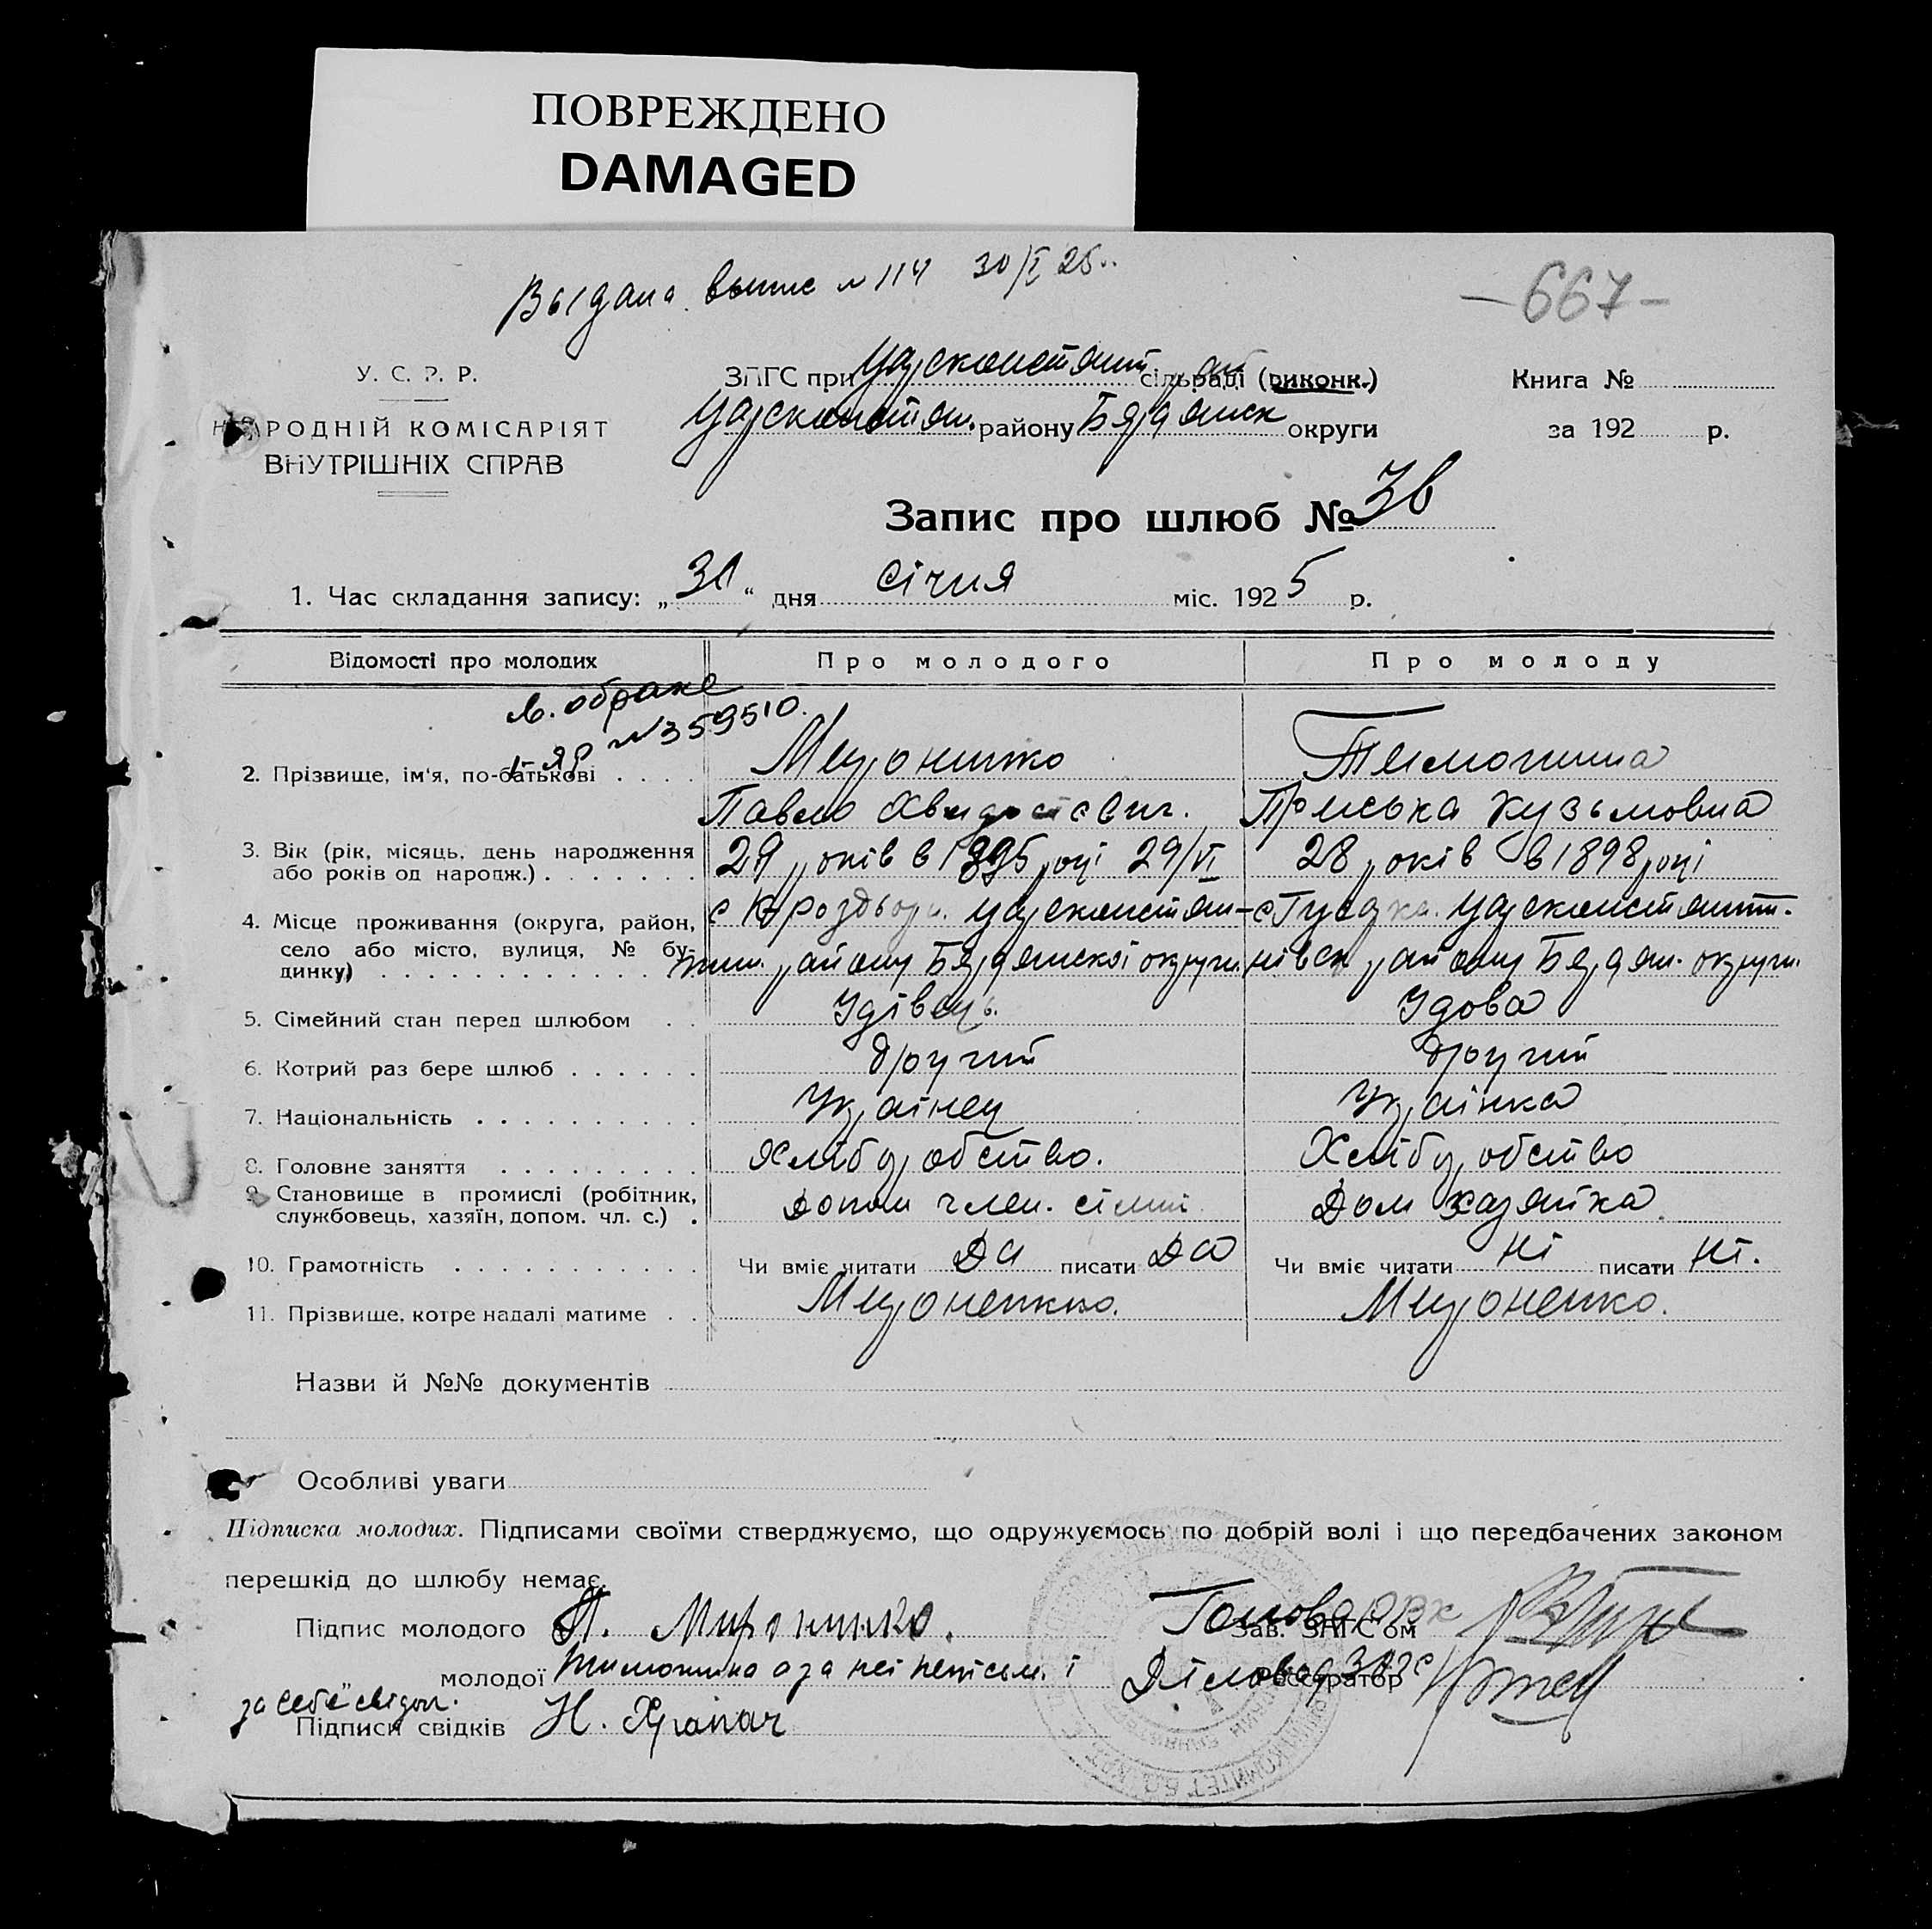 ПОВРЕЖДЕНО
DAMAGED
Выдана выпис N 114 30/I 25
-667-
У. С. Р. Р.
НАРОДНІЙ КОМІСАРІЯТ
ВНУТРІШНІХ СПРАВ
ЗПГС при Царсконстянт сільраді (виконк.)
Царсконстян. району Бердянск округи
Книга №
за 192 р.
Запис про шлюб № 36
1. Час складання запису: „30“ дня січня міс. 1925 р.
Відомості про молодих
Про молодого
Про молоду
N 359510.
2. Прізвище, ім'я, по-батькові
Мироненко
Тимошина
Павло
Приська Кузьмовна
3. Вік (рік, місяць, день народження або років од народж.)
29 років в 1895 році 29/VI
28 років в 1898 році
4. Місце проживання (округа, район, село або місто, вулиця, № будинку)
с Царсконстян-
с Гусарка. Царсконстянти-
тин. району Бердянскої округи.
нівск району Бердян. округи.
5. Сімейний стан перед шлюбом
Удівець.
Удова
6. Котрий раз бере шлюб
другий
другий
7. Національність
Українец
Українка
8. Головне заняття
Хлібуробство.
Хлібуробство
9. Становище в промислі (робітник, службовець, хазяїн, допом. чл. с.)
Допом член. сімьи
Дом хазяйка
10. Грамотність
Чи вміє читати Да писати Да
Чи вміє читати Ні писати Ні.
11. Прізвище, котре надалі матиме
Мироненко.
Мироненко.
Назви й №№ документів
Особливі уваги
Підписка молодих. Підписами своїми стверджуємо, що одружуємось по добрій волі і що передбачених законом
перешкід до шлюбу немає.
Підпис молодого П. Мироненко.
Голова РВК
Зав. ЗПГС'ом
молодої Тимошина а за неї неписьм. і
Діловод ЗАГС
Реєстратор
за себе свідок.
Підписи свідків Н.